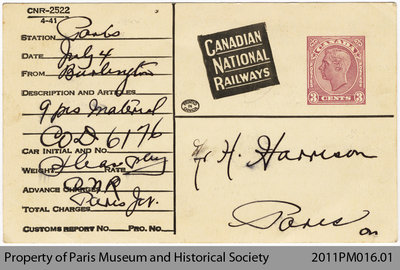 CNR-2522
4-41
STATION Paris
DATE July 4
FROM Burlington
DESCRIPTION AND ARTICLES
9 pcs material
COD 6176
CAR INITIAL AND No.
WEIGHT RATE
ADVANCE CHARGES
TOTAL CHARGES Paris Jct.
CUSTOMS REPORT No. PRO. No.
CANADIAN
NATIONAL
RAILWAYS
CANADA
3 CENTS 3
H. Harrison
Paris
on
Property of Paris Museum and Historical Society 2011PM016.01